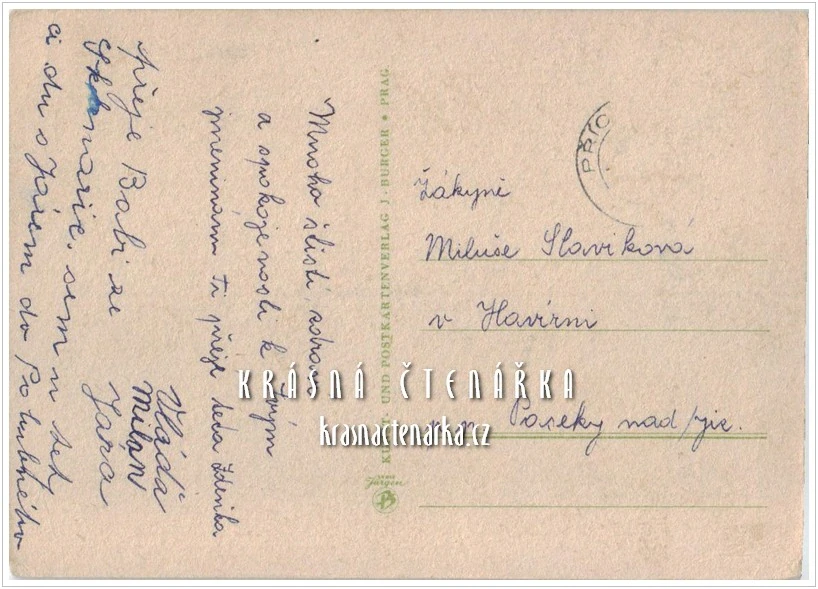 Mnoho štistí, zdraví
a spokojenosti k Tvým
jmeninám Ti přeje teta Zdenka
Vláďa
Milan
Jara
přeje Babi ze
sem u tet
do
KUNST- UND POSTKARTENVERLAG J. BURGER • PRAG
Jürgen
PŘÍO
Žákyně
Miluše Slavíková
v Havírni
p. n. Poseky nad/Jiz.
KRÁSNÁ ČTENÁŘKA
krasnactenarka.cz